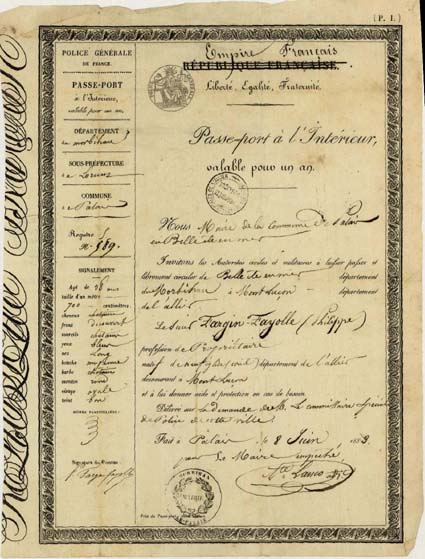 (P. I.)
POLICE GÉNÉRALE
DE FRANCE.
PASSE-PORT
à l'Intérieur,
valable pour un an.
DÉPARTEMENT
du morbihan
SOUS-PRÉFECTURE
de Lorient
COMMUNE
de Palais
Registre
N.° 589.
SIGNALEMENT
Agé de 38 ans
taille d'un mètre
700 centimètres
cheveux châtains
front découvert
sourcils châtains
yeux bleus
nez long
bouche moyenne
barbe châtaine
menton rond
visage ovale
teint bon
SIGNES PARTICULIERS
Signature du Porteur
f. Fargin fayolle
Empire Français
RÉPUBLIQUE FRANÇAISE.
Liberté, Égalité, Fraternité.
Passe-port à l'Intérieur,
valable pour un an.
Nous Maire de la commune de Palais
en Belle ile en mer
Invitons les Autorités civiles et militaires à laisser passer et
librement circuler de Belle ile en mer département
du Morbihan à Mont Luçon département
de l'allier
Le Sieur Fargin-Fayolle (Philippe)
profession de Propriétaire
natif de département de l'allier
demeurant à Mont Luçon
et à lui donner aide et protection en cas de besoin.
Délivré sur la demande de M. Le commissaire spécial
de Police de cette ville
Fait à Palais le 8 Juin 1853.
pour Le Maire empêché
MORBIHAN
PALAIS
Prix du Passeport